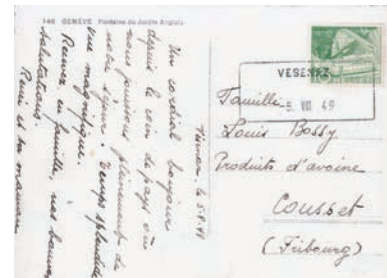 140 GENÈVE Fontaine du Jardin Anglais
Vésenaz, le 5.8.49
Un cordial bonjour
depuis le coin de pays où
nous jouissons pleinement de
notre séjour. Temps splendide
vue magnifique.
Recevez en famille, nos bonnes
salutations.
René et sa maman
VESENAZ
5. VIII 49
Famille
Louis Bossy
Produits d'avoine
Cousset
(Fribourg)